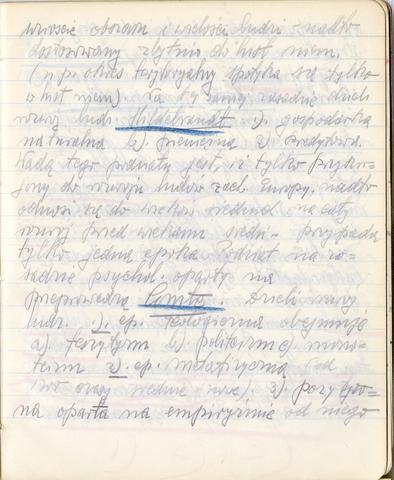 wzroście obszaru i wielości ludzi - nadto
dostosowany zbytnio do hist. niem.
(n.p. okres terytorjalny spotyka się tylko
w hist niem). Na tej samej zasadzie dzieli
rozwój ludz. Hildebrandt 1). gospodarka
naturalna b). pieniężna c). kredytowa.
Wadą tego podziału jest, iż tylko przyło-
żony do rozwoju ludów zach. Europy, nadto
odnosi się do wieków średnich na cały
rozwój przed wiekami średn. - przypada
tylko jedna epoka. Podział na za-
sadzie psychol. oparty
przeprowadza Comte. Dzieli rozwój
ludz. 1). ep. teologiczna obejmuje
a) fetyszyzm b). politeizm c). mono-
teizm 2). ep. metafizyczna (od
wieki średnie nowe). 3). pozytyw-
na oparta na empiryzmie od niego